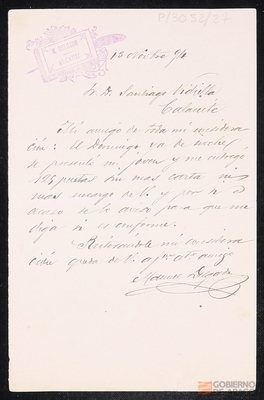 P/3032/27
Sr. D. Santiago Vidiella
Calaceite
Mi amigo de toda mi considera
ción: El Domingo, ya de noche,
se presentó un joven y me entregó
125 pesetas sin mas carta ni
mas encargo de V. y por si
acaso se lo aviso para que me
diga si es conforme.
Reiterandole mi considera
ción queda de V. amigo
GOBIERNO
DE ARAGON